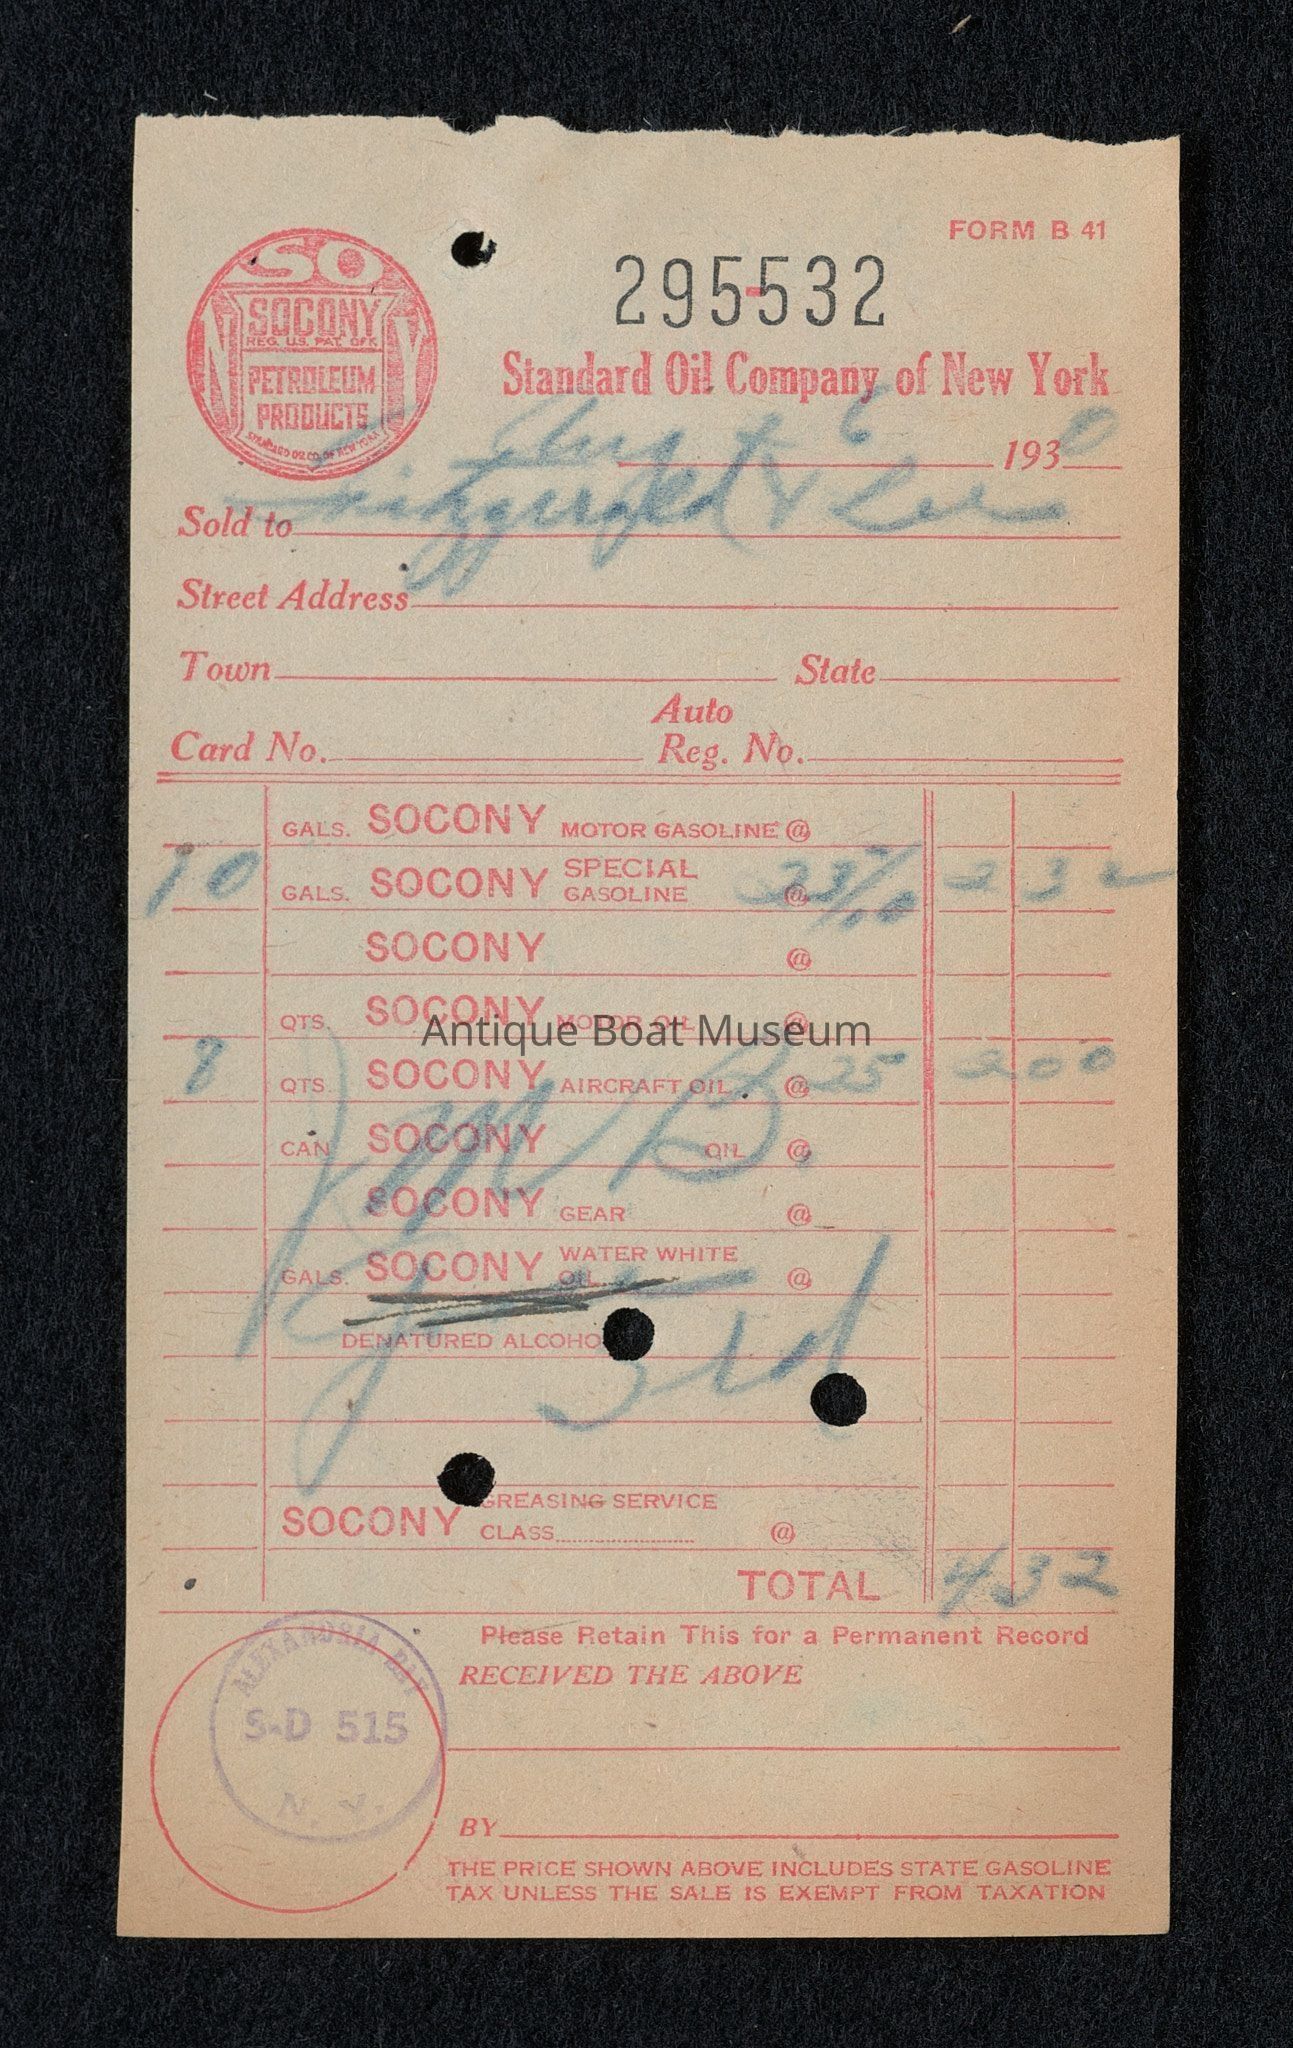 FORM B 41
295532
SO
SOCONY
REG. U.S. PAT. OFF.
PETROLEUM
PRODUCTS
STANDARD OIL CO. OF NEW YORK
Standard Oil Company of New York
Aug 6 1930
Sold to Fitzgerald & Lee
Street Address
Town State
Auto
Card No. Reg. No.
GALS. SOCONY MOTOR GASOLINE @
10 GALS. SOCONY SPECIAL GASOLINE @ 23 2/10 2 32
SOCONY @
QTS. SOCONY MOTOR OIL @
Antique Boat Museum
8 QTS. SOCONY AIRCRAFT OIL @ 25 2 00
CAN SOCONY OIL @
SOCONY GEAR @
GALS. SOCONY WATER WHITE OIL @
DENATURED ALCOHO
3rd
SOCONY GREASING SERVICE
CLASS @
TOTAL 4 32
Please Retain This for a Permanent Record
RECEIVED THE ABOVE
ALEXANDRIA BAY
S-D 515
N. Y.
BY
THE PRICE SHOWN ABOVE INCLUDES STATE GASOLINE
TAX UNLESS THE SALE IS EXEMPT FROM TAXATION